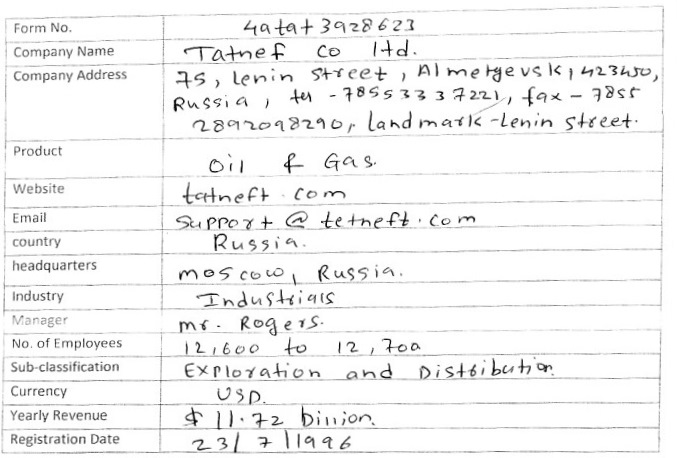 Form No. 4atat3928623
Company Name Tatnef co ltd.
Company Address 75, Lenin street, Almetyevsk, 423450,
Russia, tel - 78553337221, fax - 7855
2892098290, landmark-Lenin street.
Product Oil & Gas.
Website tatneft.com
Email Support@tetneft.com
country Russia.
headquarters moscow, Russia.
Industry Industrials
Manager mr. Rogers.
No. of Employees 12,600 to 12,700
Sub-classification Exploration and Distribution
Currency USD.
Yearly Revenue $ 11.72 billion.
Registration Date 23/7/1996